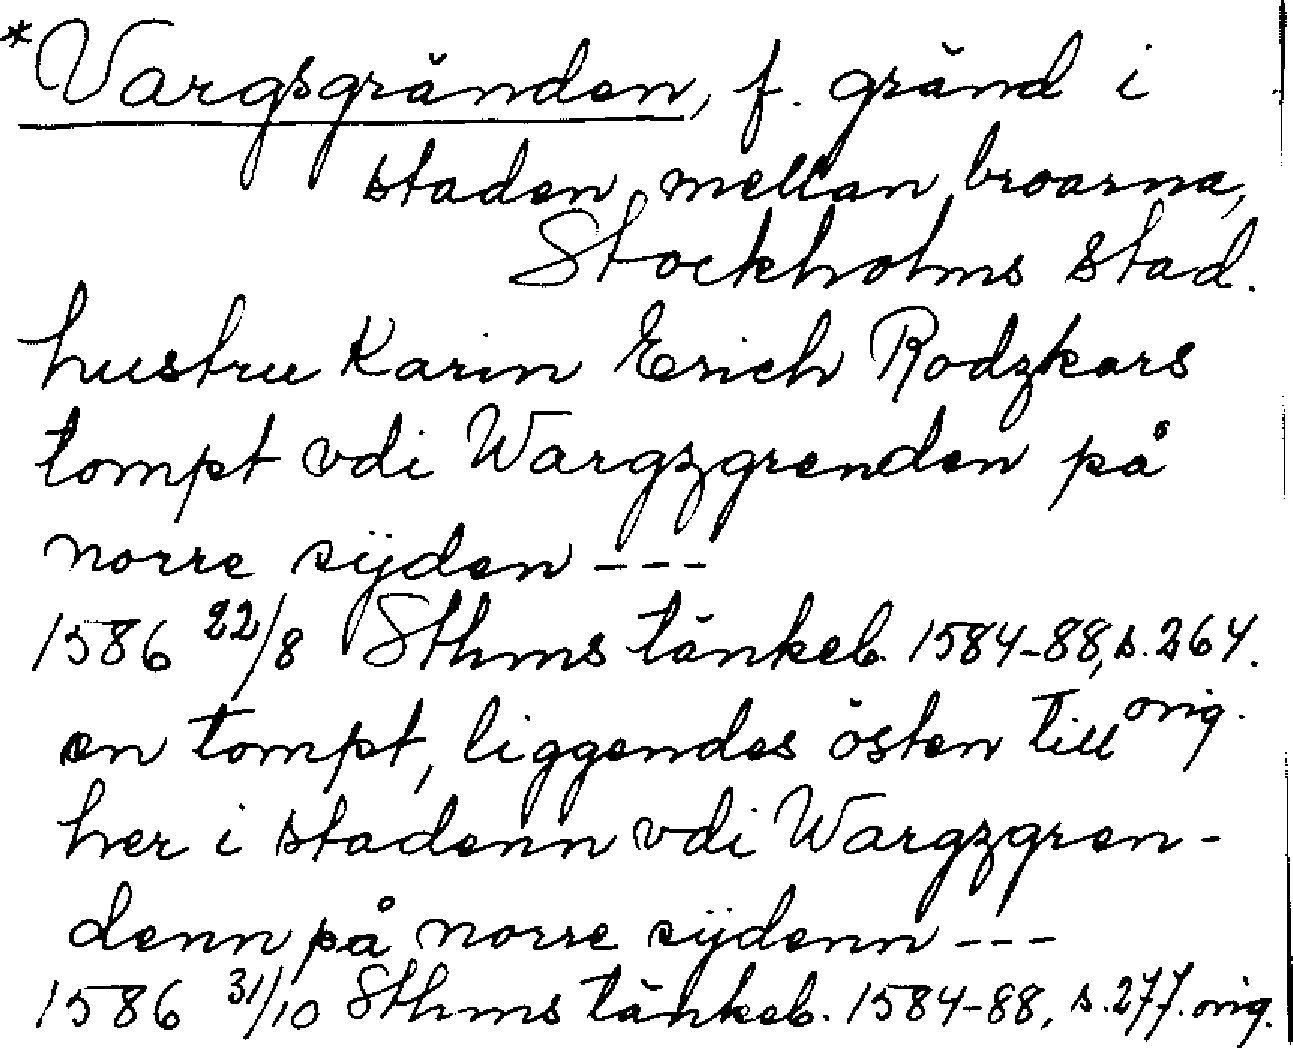 *Vargsgränden, f. gränd i
staden mellan broarna,
Stockholms stad.
hustru Karin Erich Rodzkars
tompt vdi Wargzgrenden på
norre sijden ---
1586 22/8 Sthms tänkeb. 1584-88, s. 264.
orig.
en tompt, liggendes östen till
her i stadenn vdi Wargzgren-
denn på norre sijdenn ---
1586 31/10 Sthms tänkeb. 1584-88, s. 277. orig.